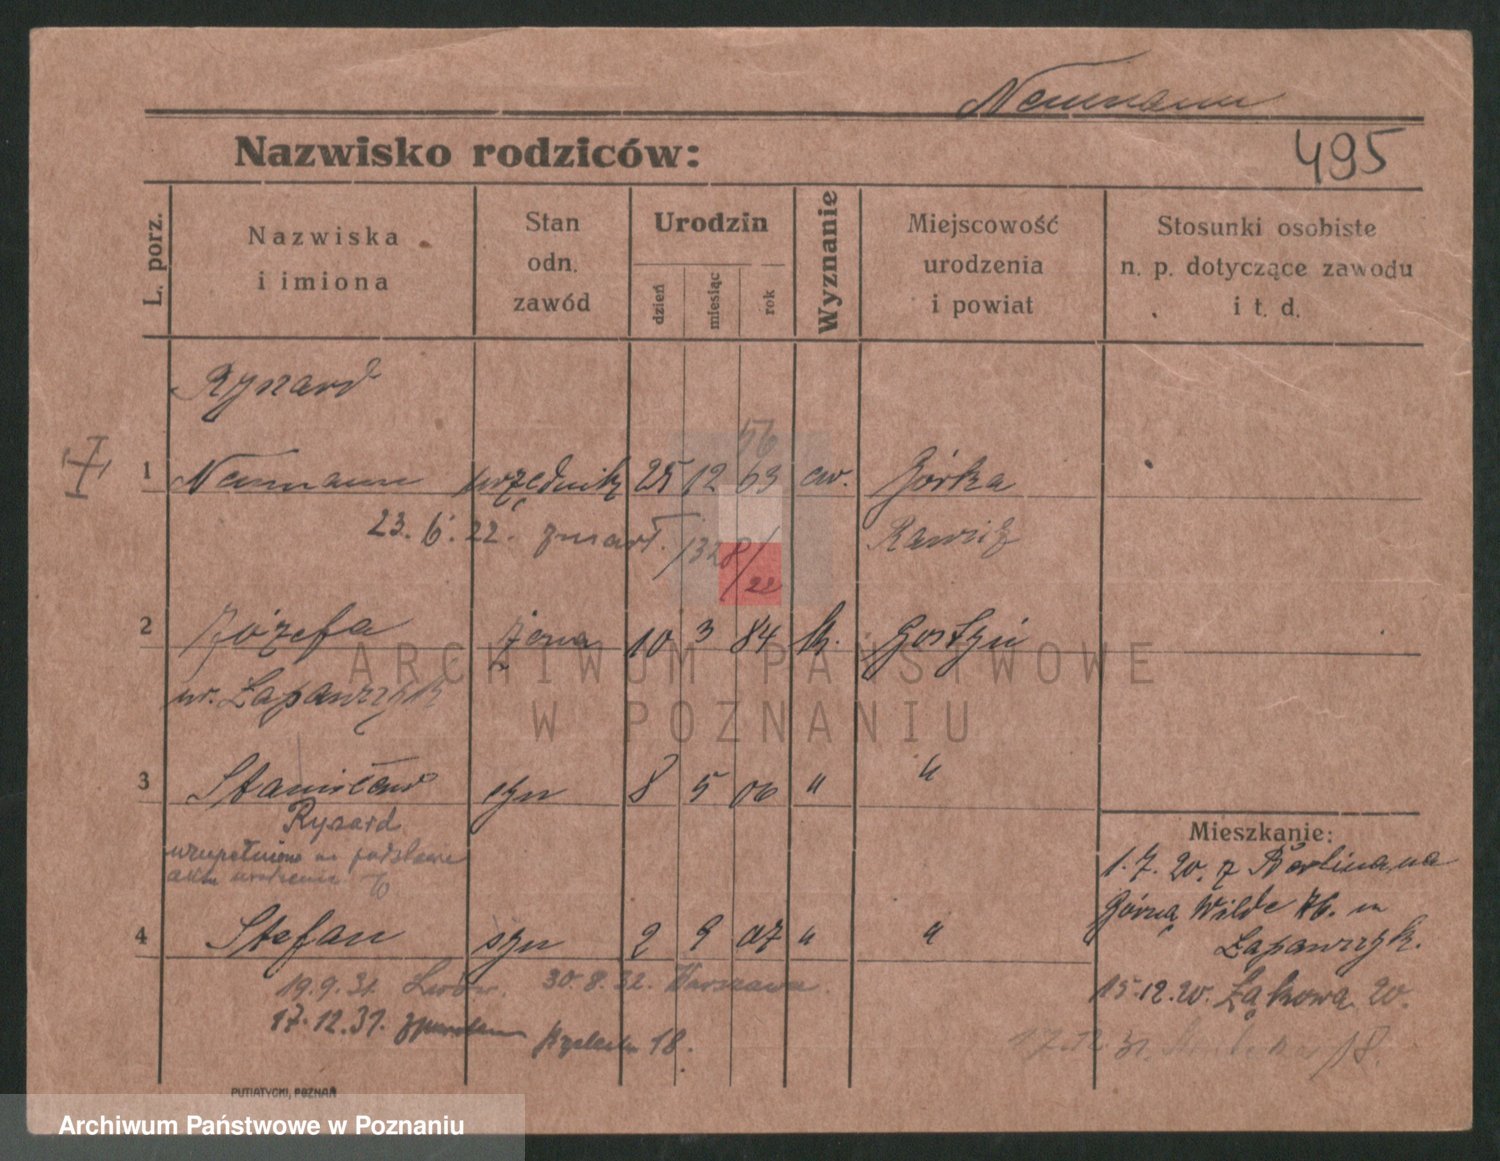 Neumann
Nazwisko rodziców:
495
L. porz.
Nazwiska
i imiona
Stan
odn.
zawód
Urodzin
dzień
miesiąc
rok
Wyznanie
Miejscowość
urodzenia
i powiat
Stosunki osobiste
n. p. dotyczące zawodu
i t. d.
Ryszard
56
1 Neumann urzędnik 25 12 63 ew. Górka
23. 6. 22. zmarł. /1328/22 Rawicz
2 Józefa żona 10 3 84 k. Gostyń
ur. Łapawczyk
3 Stanisław syn 8 5 06 " "
Ryszard
uzupełniono na podstawie
aktu urodzenia
4 Stefan syn 2 9 07 " "
19.9.31. Lwów. 30.8.32. Warszawa.
17.12.31. 18.
Mieszkanie:
1.7.20. z Berlina na
Górną Wildę 76. m
Łapawczyk.
15.12.20. Łąkowa 20.
17.12.31. 18.
PUTIATYCKI, POZNAŃ
ARCHIWUM PAŃSTWOWE
W POZNANIU
Archiwum Państwowe w Poznaniu